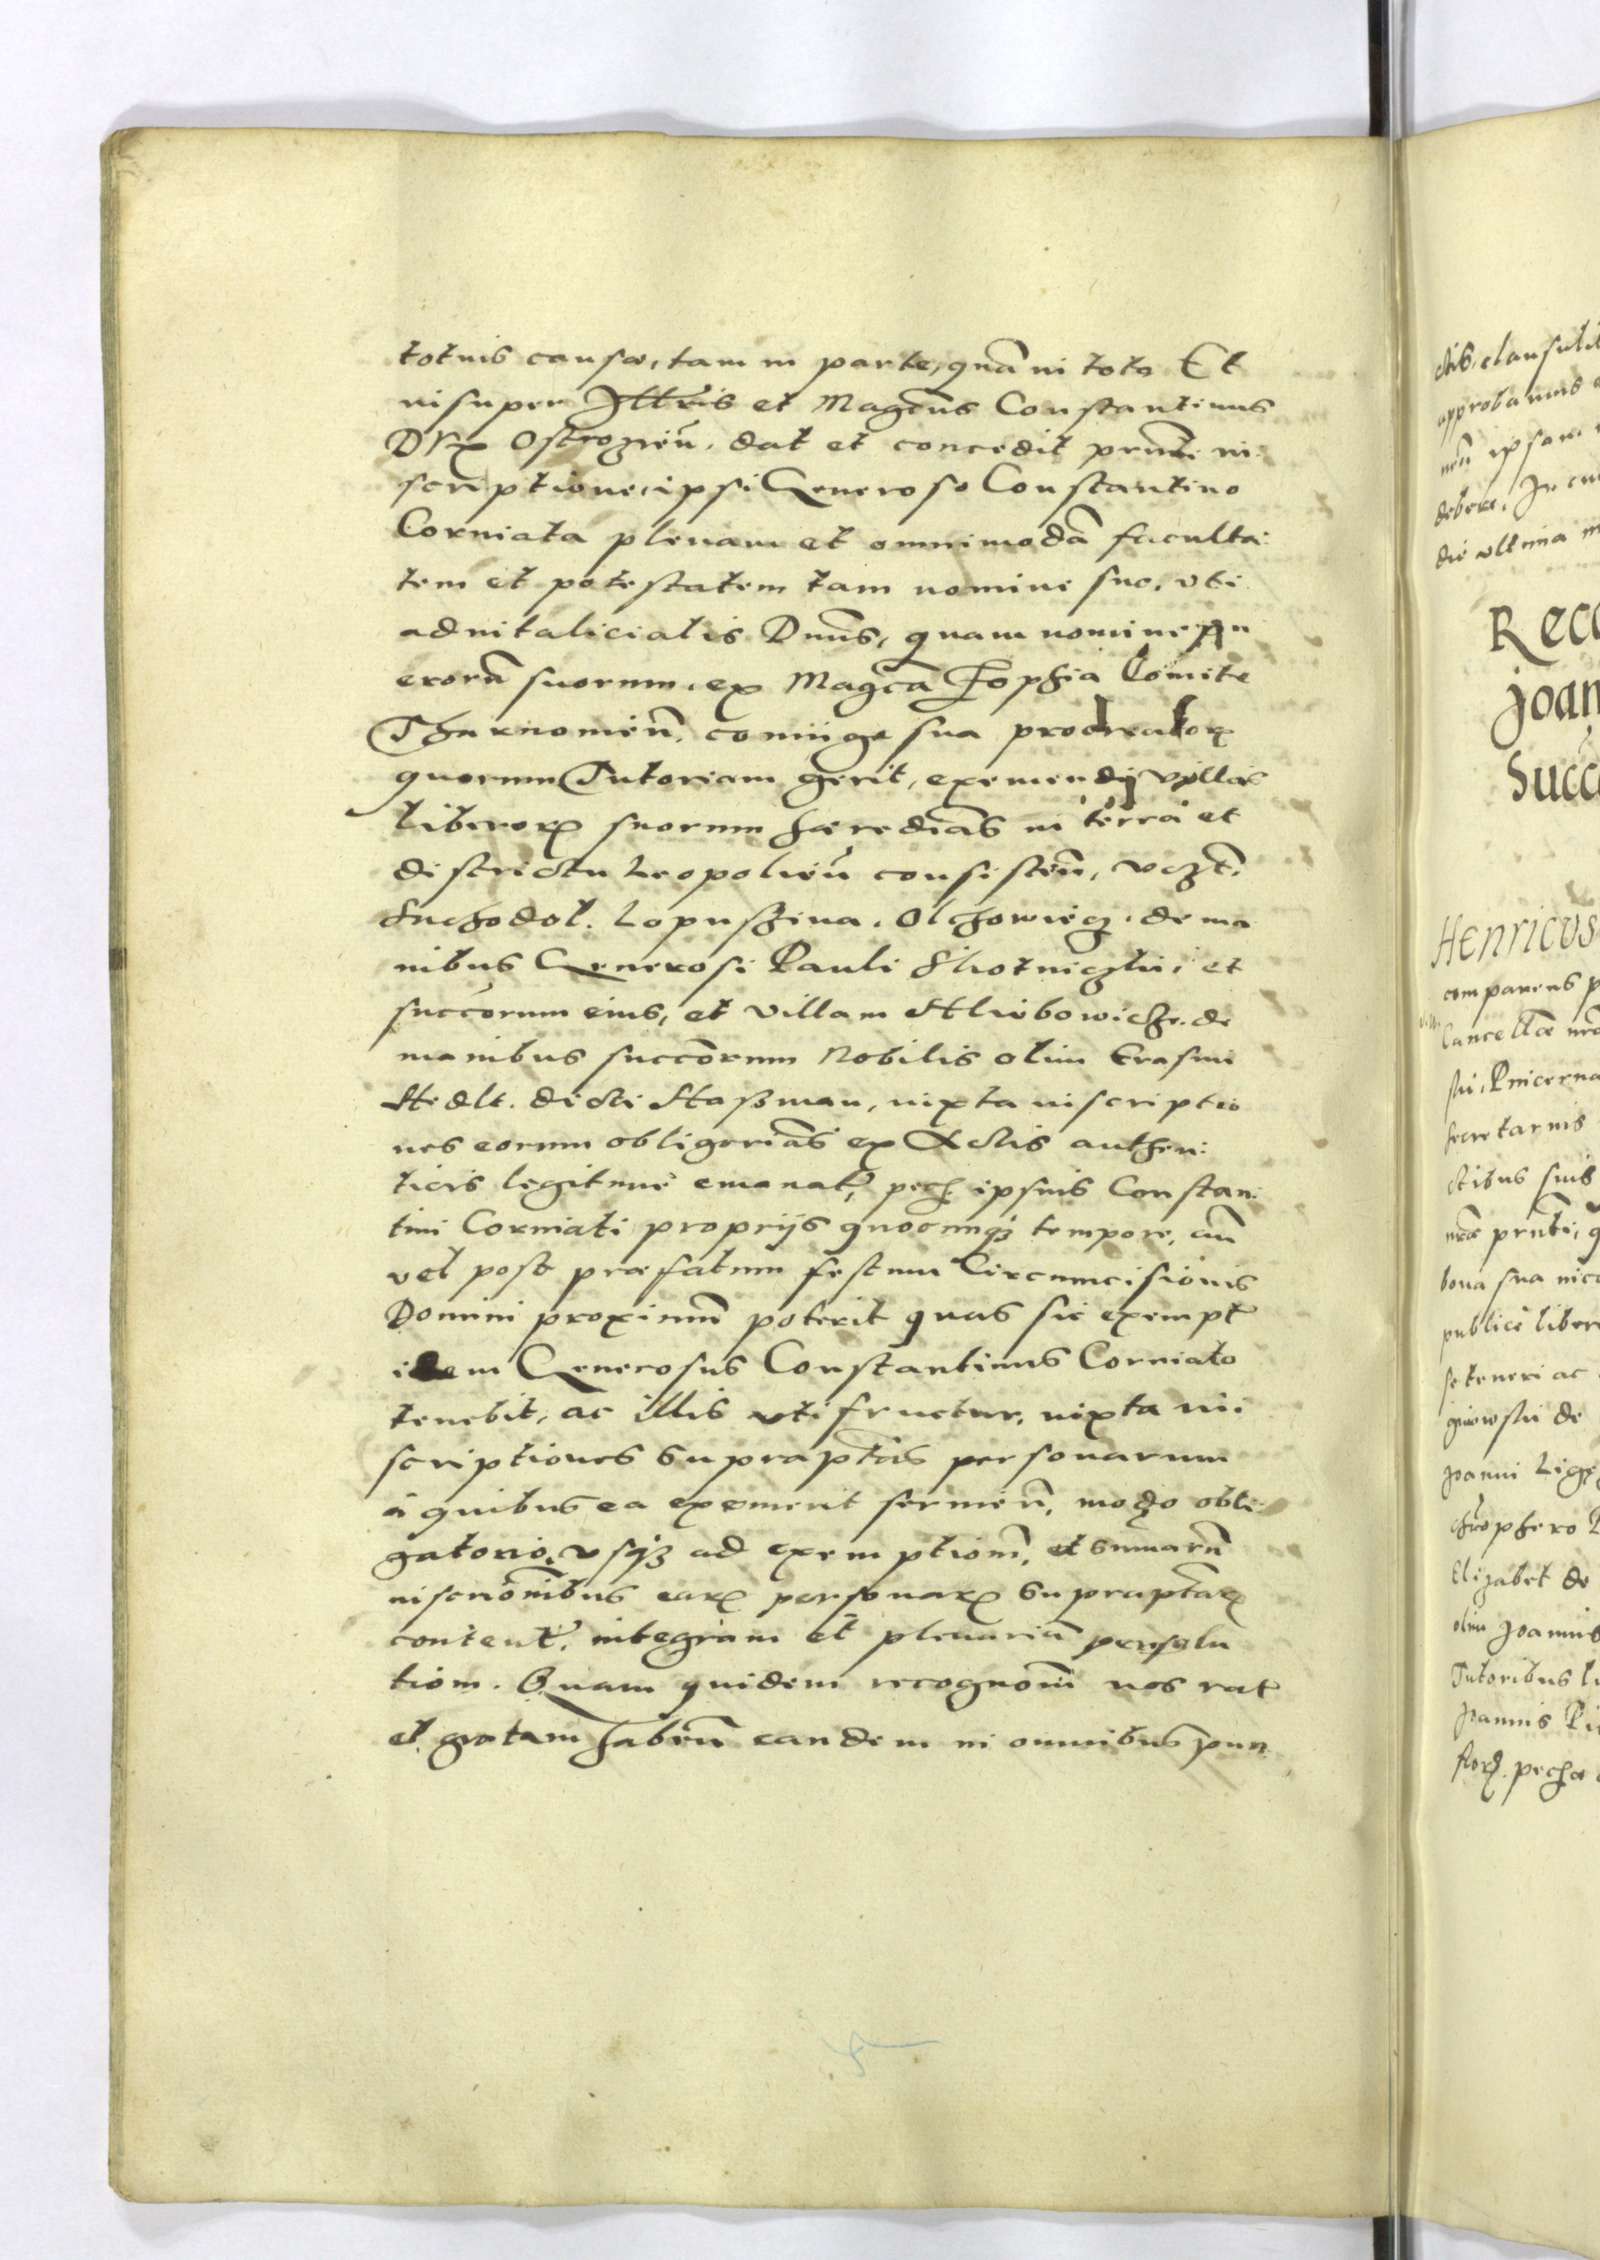 totius causæ, tam in parte, quā in toto Et
insuper Illtris et Magcus Constantinus
Dux Ostrogien̄. dat et concedit prn̄ti in
scriptione, ipsi Generoso Constantino
Corniata plenam et omnimodā faculta
tem et potestatem tam nomine suo, vti
aduitalicialis Dnus, quam nomine pu
erorū suorum, ex Magca Zophia Comite
Tharnouien̄. coniuge sua procreator
quorum Tutoriam gerit, exemendi villas
liberor suorum hæredias in terra et
districtu Leopolien̄ consisten̄, vczt
Suchodol. Lopuszna. Olchowiecz. de ma
nibus Generosi Pauli Sliotniczki, et
succorum eius, et villam Hliebowicze. de
manibus succorum Nobilis olim Erasmi
Hedlt. dicti Haszman, iuxta inscriptio
nes eorum obligorias ex Actis authen
ticis legitime emanat, pech ipsius Constan
tini Corniati proprijs quocunqz tempore, an̄
vel post præfatum festum Circumcisionis
Domini proximū poterit quas sic exempt
idem Generosus Constantinus Corniato
tenebit, ac illis vti fructur, iuxta in
scriptiones supraptas personarum
à quibus ea exemerit sermen̄, modo obli
gatorio, vsqz ad exemptionē, et summarū
in scrioñibus ear personar supraptar
content, integram et plenariā persolu
tiom. Quam quidem recognom nos rat
et gratam haben̄ eandem in omnibus pun

ctis, clausulis
approbamus
ipsam
debere. In cu
die vltima m
Reco
Joan
Succ
Henricus
comparens p
Cancellæ nr̄æ
Pincerna
Secretarijs
ctibus suis
nræ prn̄ti, q
bona sua
publice liber
se teneri ac
de
Joanni Lige
phero
Elizabet de
olim Joannis
Tutoribus li
Joannis Pi
pechæ